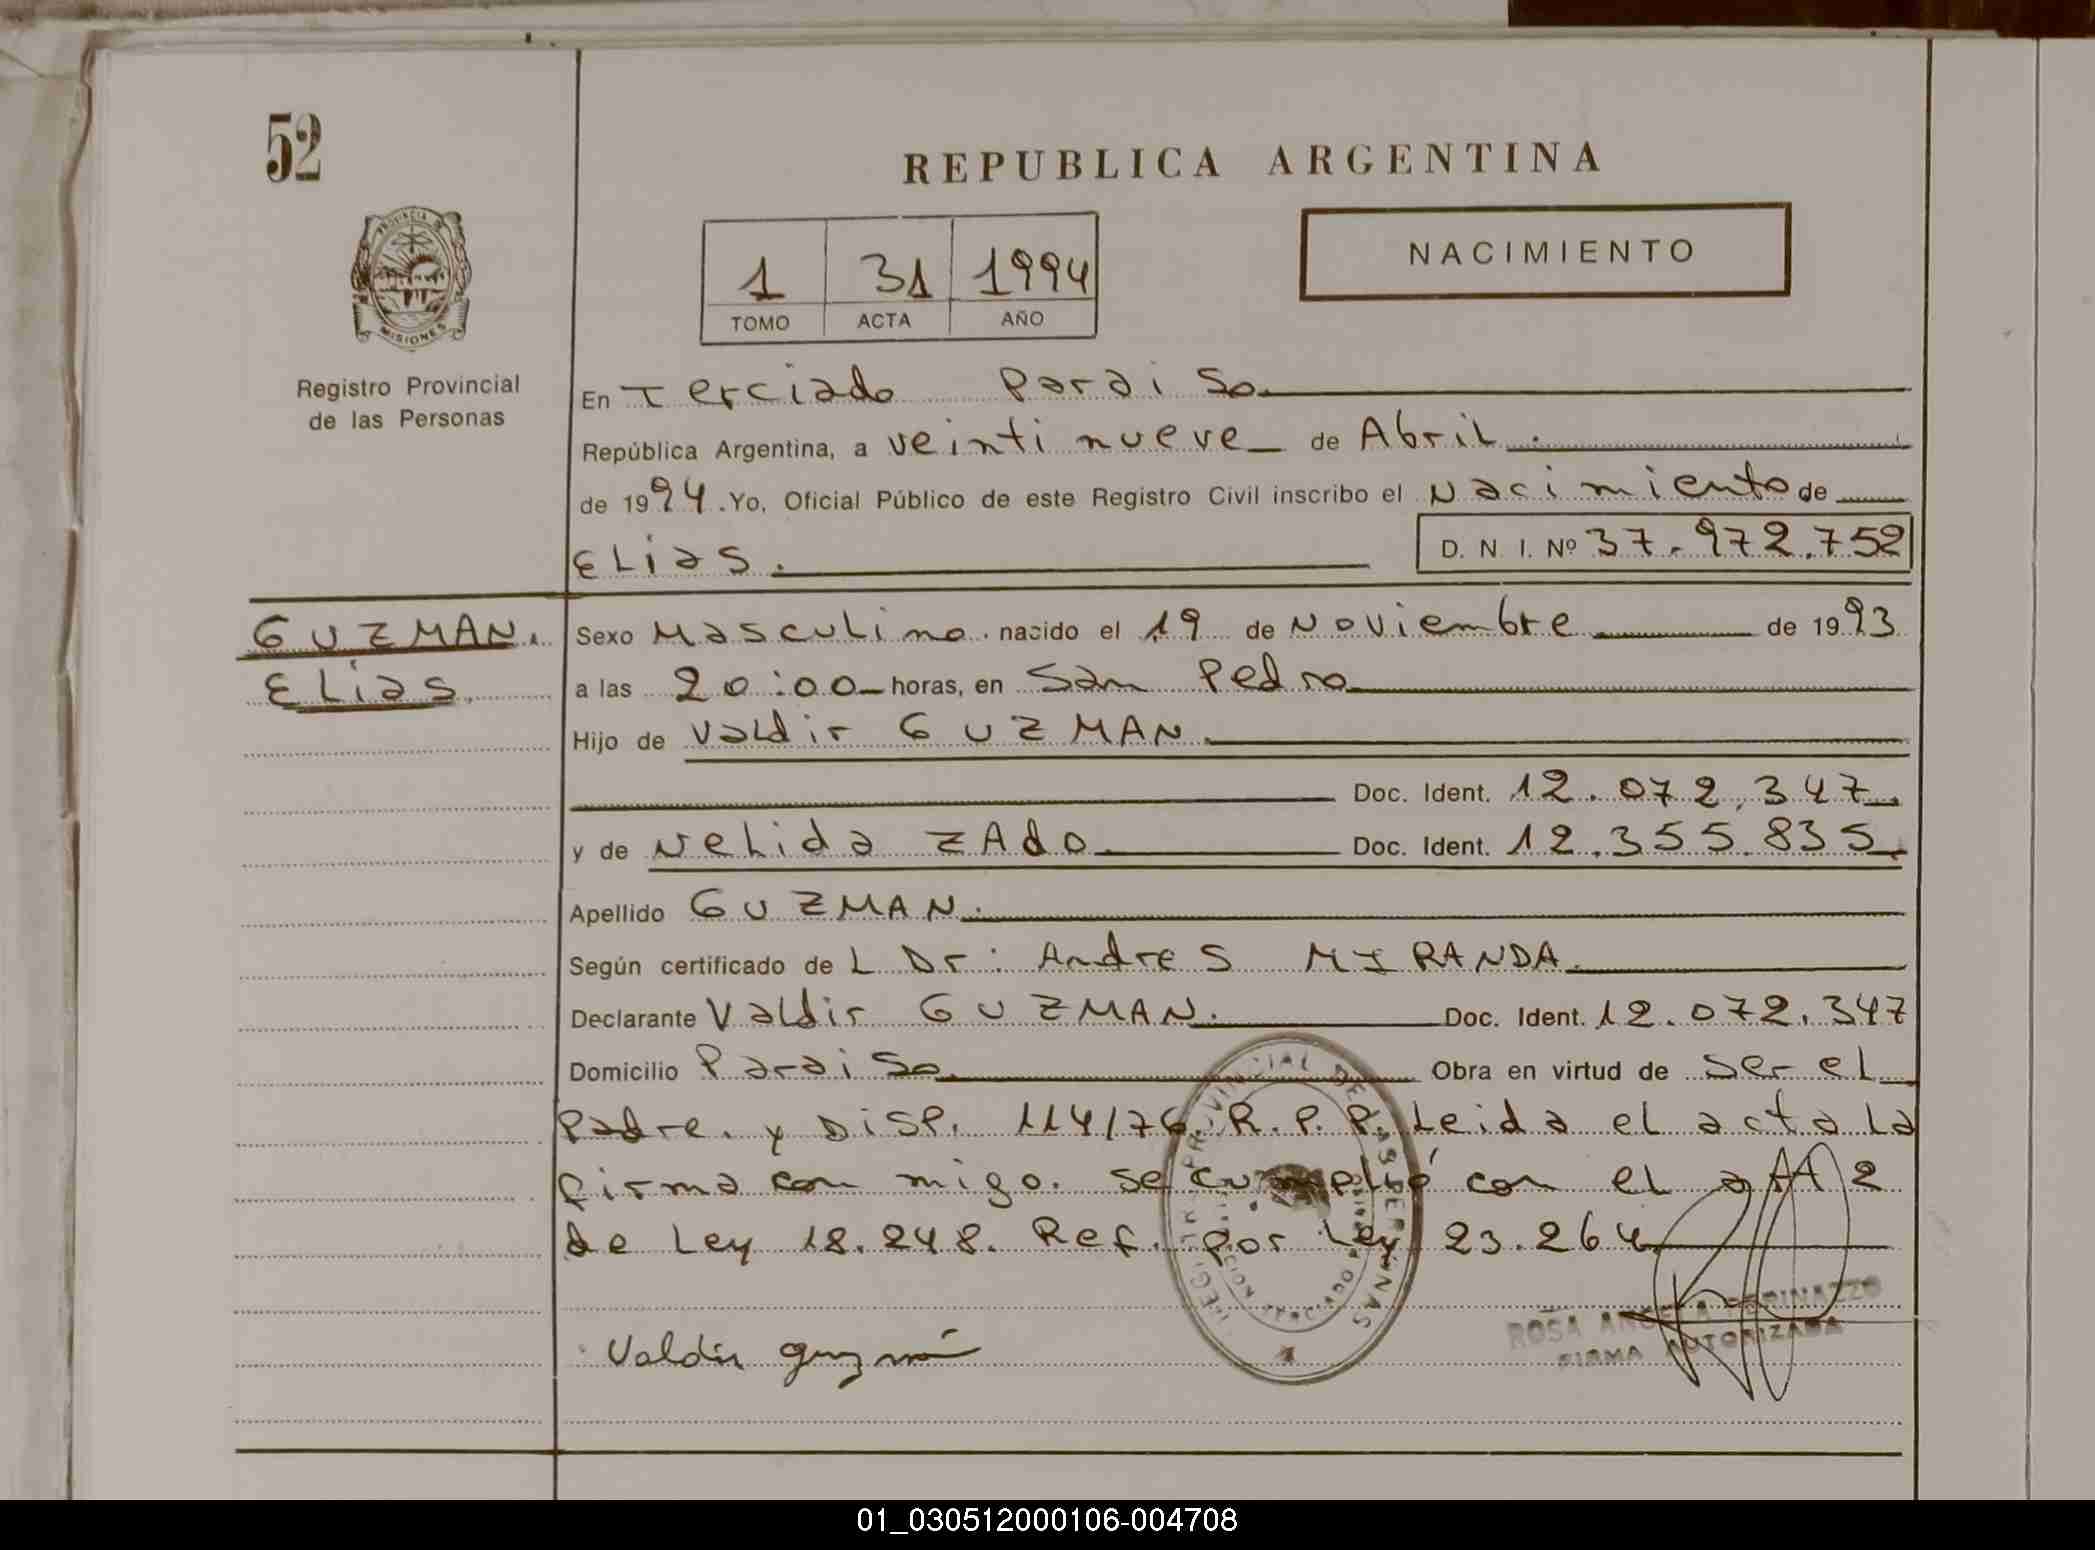 52
REPUBLICA ARGENTINA
PROVINCIA DE
MISIONES
Registro Provincial
de las Personas
1 31 1994
TOMO ACTA AÑO
NACIMIENTO
En Terciado Paraiso
República Argentina, a veinti nueve de Abril.
de 1994. Yo, Oficial Público de este Registro Civil inscribo el Nacimiento de
ELias. D. N. I. Nº 37.972.752
GUZMAN.
ELias
Sexo Masculino. nacido el 19 de Noviembre de 1993
a las 20:00 horas, en San Pedro
Hijo de Valdir GUZMAN.
Doc. Ident. 12.072.347.
y de Nelida ZAdo Doc. Ident. 12.355.835.
Apellido GUZMAN.
Según certificado de L Dr: Andres MIRANDA.
Declarante Valdir GUZMAN. Doc. Ident. 12.072.347
Domicilio Paraiso Obra en virtud de ser el
Padre. y DISP. 114/76. R.P.P. Leida el acta La
firma con migo. se cumplió con el art 2
de Ley 18.248. Ref. por Ley 23.264
Valdir guzmán
REGISTRO PROVINCIAL DE LAS PERSONAS
ROSA ANGELA PERINAZZO
FIRMA AUTORIZADA
01_030512000106-004708